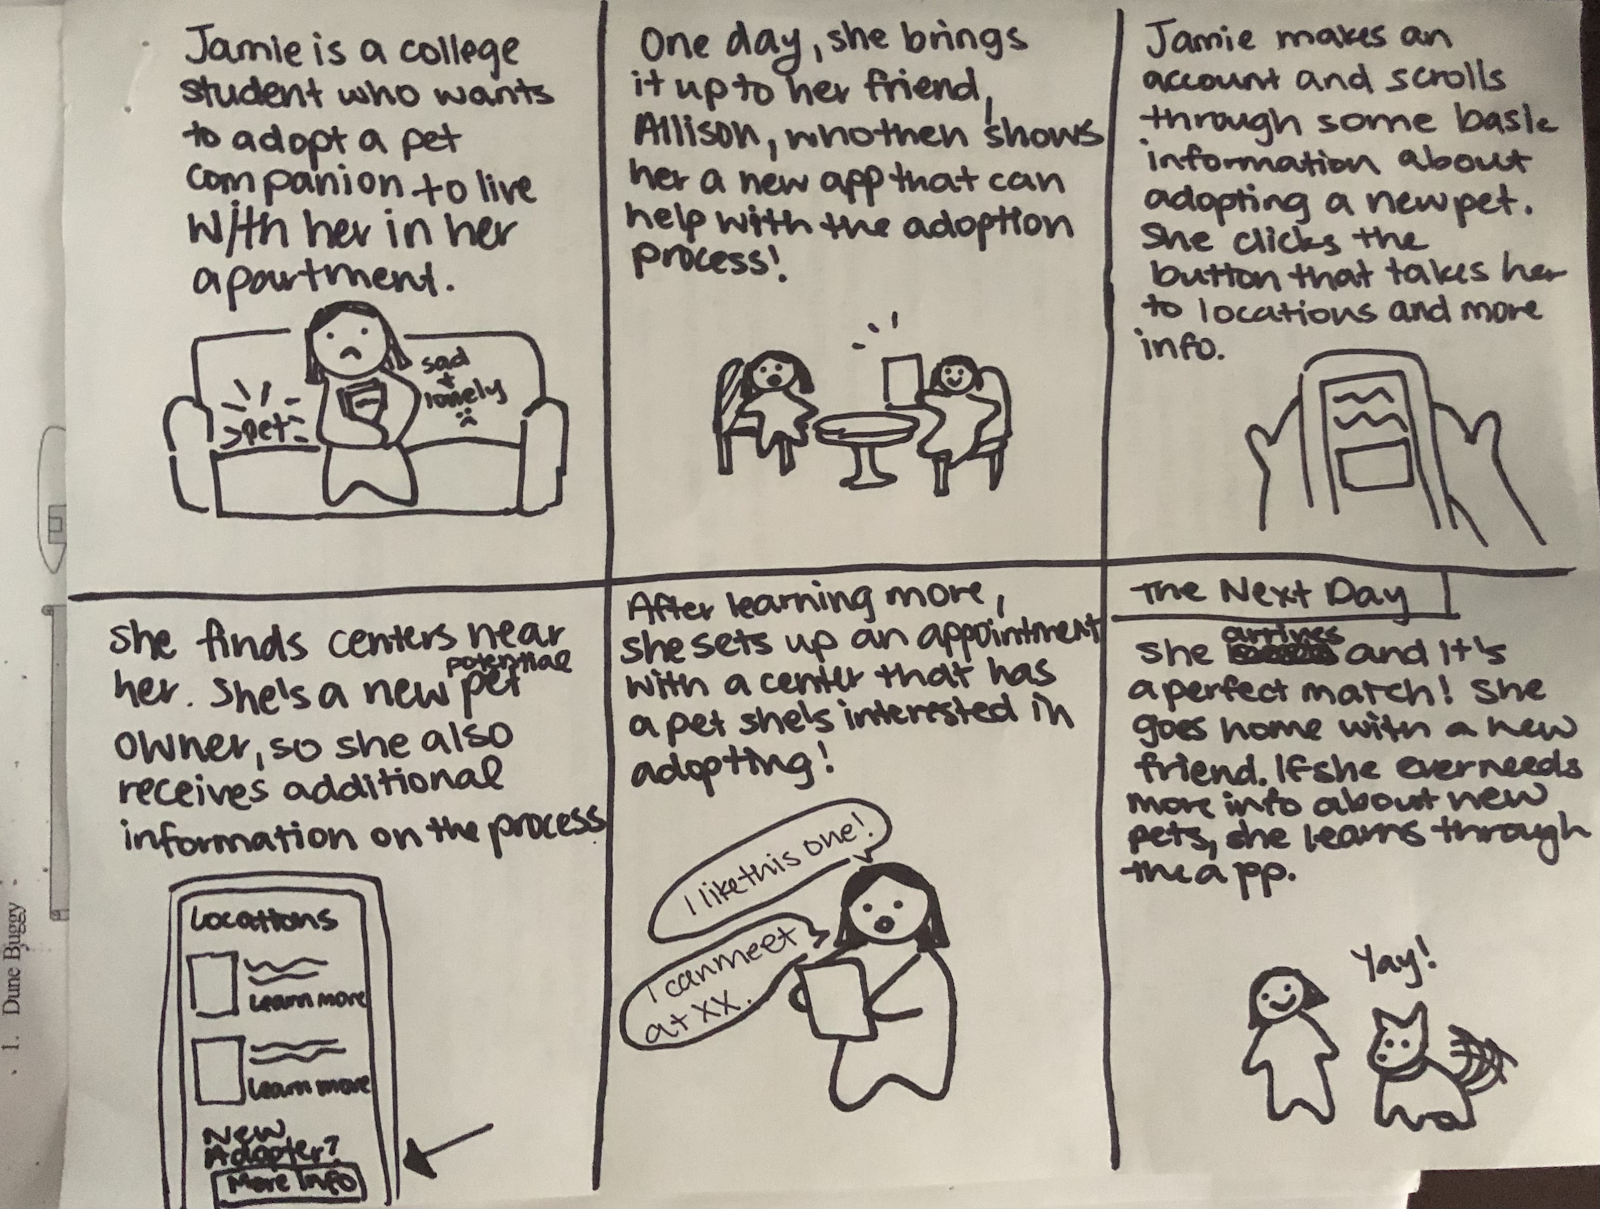 Jamie is a college
student who wants
to adopt a pet
companion to live
with her in her
apartment.
pet
sad
+
lonely
One day, she brings
it up to her friend,
Allison, who then shows
her a new app that can
help with the adoption
process!
Jamie makes an
account and scrolls
through some basic
information about
adopting a new pet.
She clicks the
button that takes her
to locations and more
info.
She finds centers near
her. She's a new potential pet
owner, so she also
receives additional
information on the process
Locations
Learn more
Learn more
New
Adopter?
More Info
After learning more,
she sets up an appointment
with a center that has
a pet she's interested in
adopting!
I like this one!
I can meet
at XX.
The Next Day
She arrives and it's
a perfect match! She
goes home with a new
friend. If she ever needs
more info about new
pets, she learns through
the app.
Yay!
1. Dune Buggy